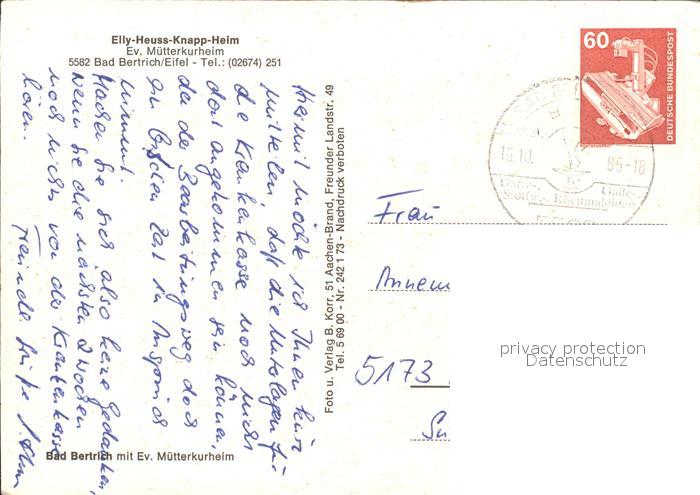 Elly-Heuss-Knapp-Heim
Ev. Mütterkurheim
5582 Bad Bertrich/Eifel - Tel.: (02674) 251
Hiermit möchte ich Ihnen kurz
mitteilen daß die Unterlagen für
die Krankenkasse noch nicht
dort angekommen sein können,
da der Bearbeitungsweg doch
ein bißchen Zeit in Anspruch
nimmt.
Machen Sie sich also keine Gedanken,
wenn Sie die nächsten 2 Wochen
noch nichts von der Krankenkasse
hören.
Freundl. Grüße
Bad Bertrich mit Ev. Mütterkurheim
Foto u. Verlag B. Korr, 51 Aachen-Brand, Freunder Landstr. 49
Tel. 5 69 00 - Nr. 242 1 73 - Nachdruck verboten
60
DEUTSCHE BUNDESPOST
15.10.
85-18
Galle-,
Stoffw.-, Rheumaleiden
Frau
Annem
5173
privacy protection
Datenschutz